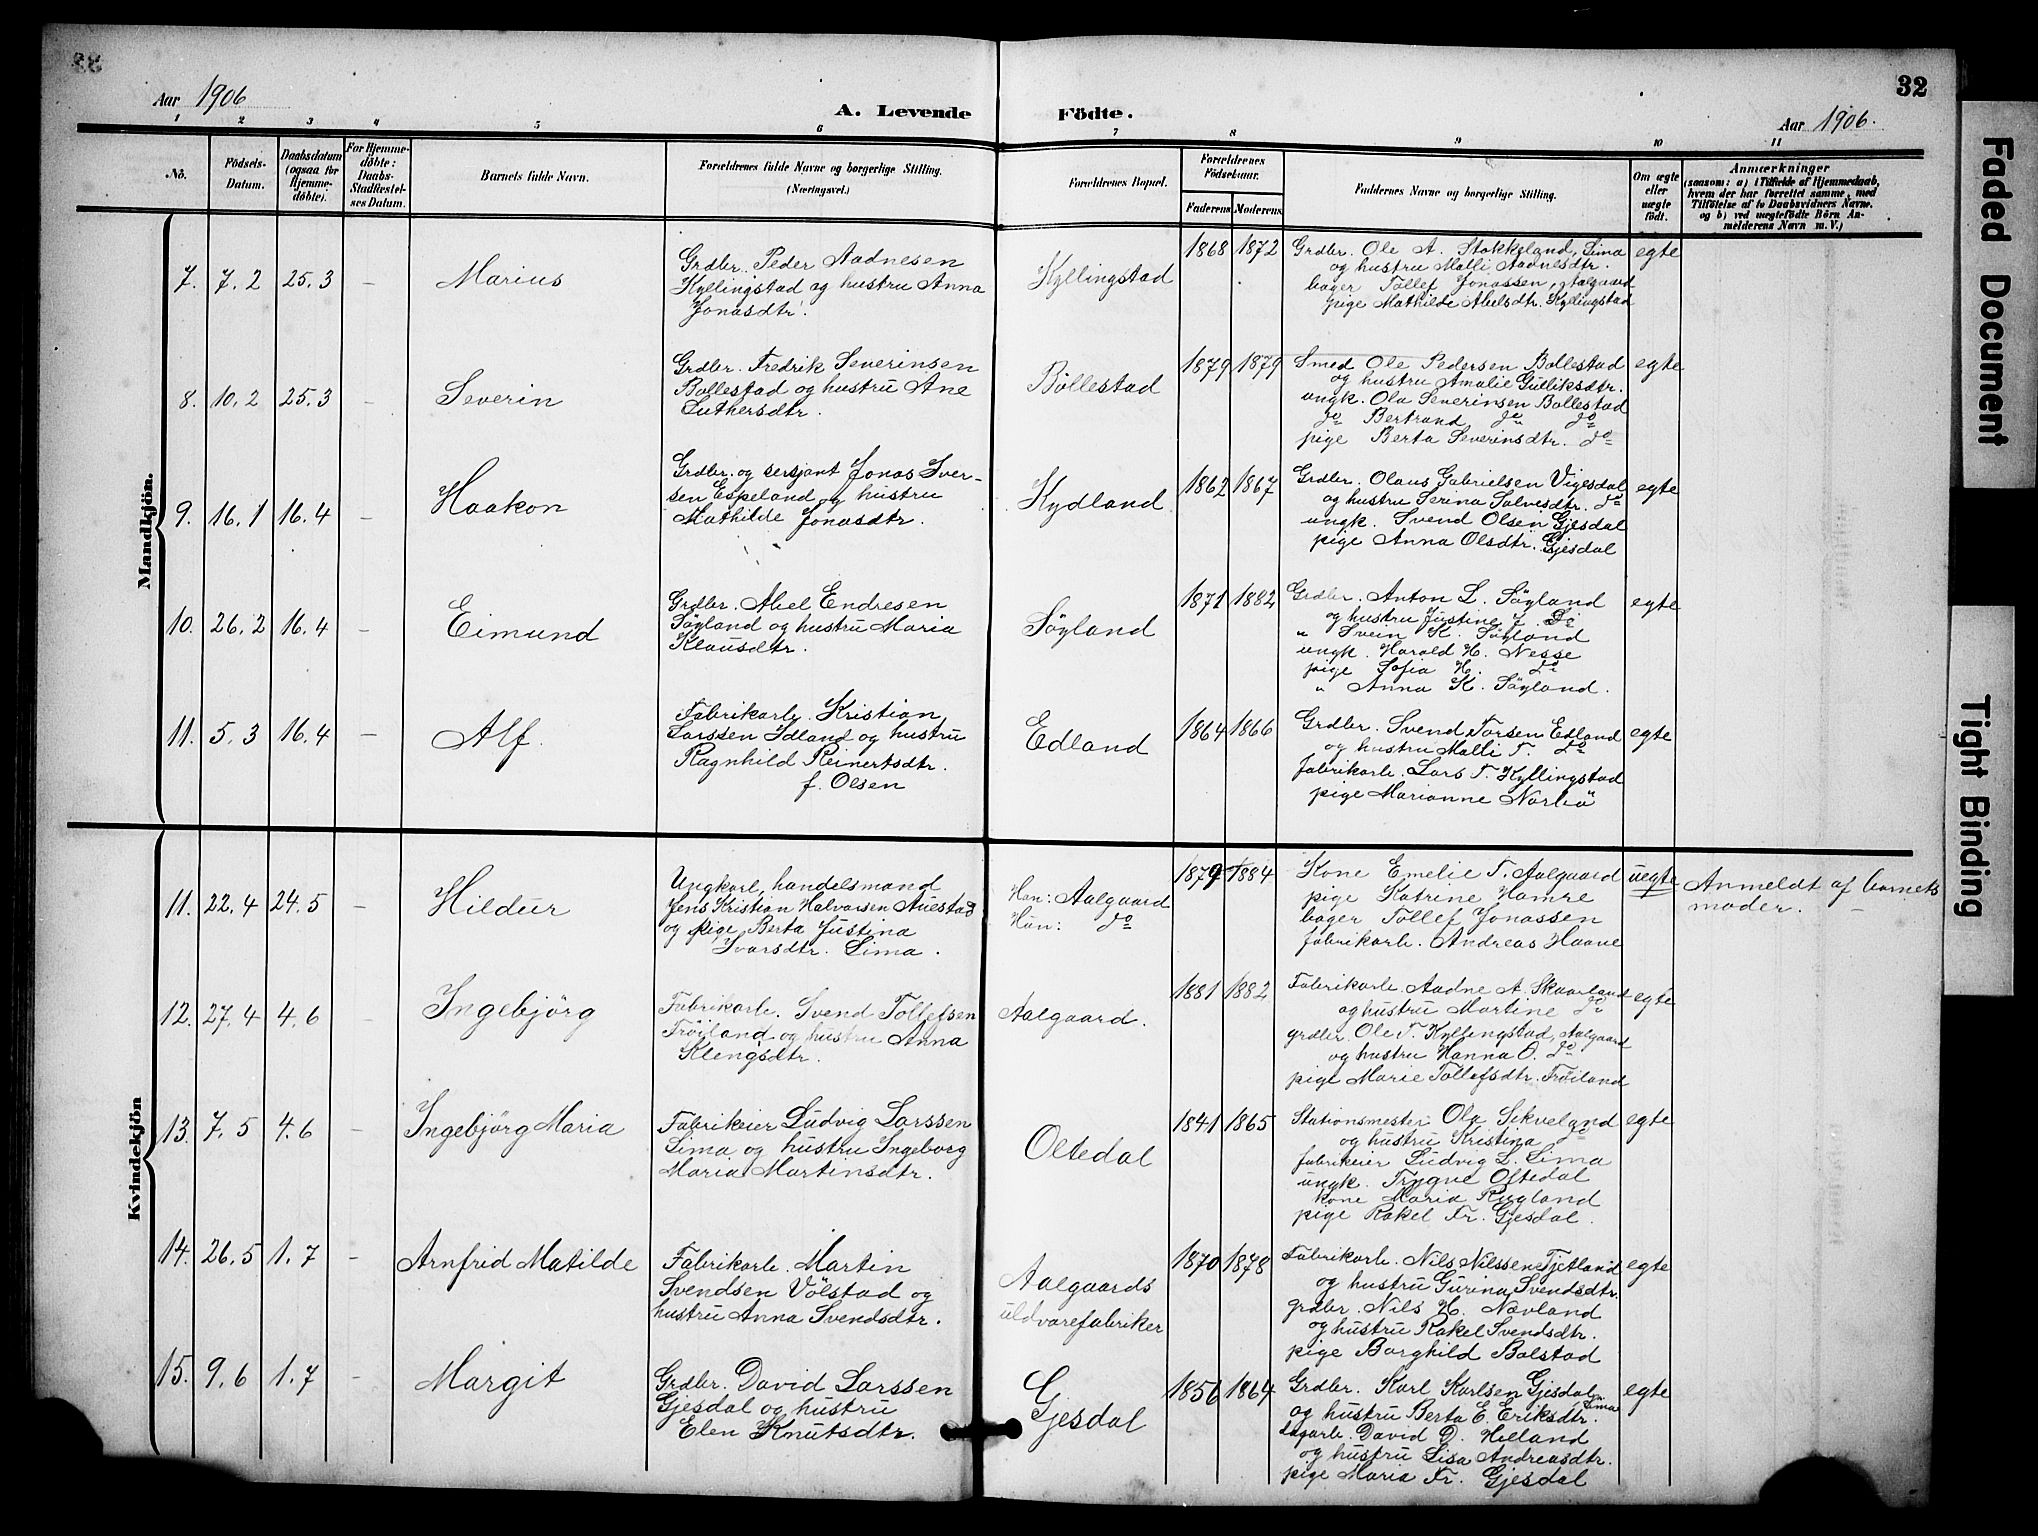 32
Aar 1906
A. Levende Födte.
Aar 1906.
1 2 3 4 5 6 7 8 9 10 11
Nô.
Födsels-
Datum.
Daabsdatum
(ogsaa for
Hjemme-
döbte).
For Hjemme-
döbte:
Daabs-
Stadfæstel-
ses Datum.
Barnets fulde Navn.
Forældrenes fulde Navne og borgerlige Stilling.
(Næringsvei.)
Forældrenes Bopæl.
Forældrenes
Födselsaar.
Faderens Moderens
Faddernes Navne og borgerlige Stilling.
Om ægte
eller
uægte
födt.
Anmærkninger
(saasom: a) i Tilfælde af Hjemmedaab,
hvem der har forrettet samme, med
Tilföielse af to Daabsvidners Navne.
og b) ved uægtefödte Börn An-
melderens Navn m. V.)
Mandkjön.
7. 7.2 25.3 – Marius
Grdbr. Peder Aadnesen
Kyllingstad og hustru Anna
Jonasdtr.
Kyllingstad
1868 1872
Grdbr. Ole A. Stokkeland, Lima
og hustru Malli Aadnesdtr.
bager Tollef Jonassen, Aalgaard
pige Mathilde Abelsdtr. Kyllingstad
egte
8. 10.2 25.3 – Severin
Grdbr. Fredrik Severinsen
Bollestad og hustru Ane
Luthersdtr.
Bollestad
1879 1879
Smed Ole Pedersen Bollestad
og hustru Amalie Gulliksdtr.
ungk. Ola Severinsen Bollestad
do Bertrand do do
pige Berta Severinsdtr. do
egte
9. 16.1 16.4 – Haakon
Grdbr. og sersjant Jonas Iver-
sen Espeland og hustru
Mathilde Jonasdtr.
Kydland
1862 1867
Grdbr. Olaus Gabrielsen Vigesdal
og hustru Serina Salvesdtr. do
ungk. Svend Olsen Gjesdal
pige Anna Olsdtr. Gjesdal
egte
10. 26.2 16.4 – Eimund
Grdbr. Abel Endresen
Söyland og hustru Maria
Klausdtr.
Söyland
1871 1882
Grdbr. Anton L. Söyland
og hustru Justine J. do
" Svein K. Söyland
ungk. Harald H. Nesse
pige Sofia H. do
" Anna K. Söyland.
egte
11. 5.3 16.4 – Alf.
Fabrikarb. Kristian
Larssen Idland og hustru
Ragnhild Reinertsdtr.
f. Olsen
Edland
1864 1866
Grdbr. Svend Torsen Edland
og hustru Malli T. do
fabrikarb. Lars T. Kyllingstad
pige Marianne Norbö
egte
Kvindekjön
11. 22.4 24.5 – Hildur
Ungkarl, handelsmand
Jens Kristian Halvorsen Austad
og pige Berta Justina
Ivarsdtr. Lima.
Han: Aalgaard
Hun: do
1879 1884
Kone Emelie T. Aalgaard
pige Katrine Hamre
bager Tollef Jonassen
fabrikarb. Andreas Haave
uegte
Anmeldt af barnets
moder. –
12. 27.4 4.6 – Ingebjörg
Fabrikarb. Svend Tollefsen
Fröiland og hustru Anna
Klengsdtr.
Aalgaard.
1881 1882
Fabrikarb. Aadne A. Skaarland
og hustru Martine do
grdbr. Ole T. Kyllingstad, Aalgaard
og hustru Hanna O. do
pige Marie Tollefsdtr. Fröiland
egte
13. 7.5 4.6 – Ingebjörg Maria
Fabrikeier Ludvig Larssen
Lima og hustru Ingeborg
Maria Martinsdtr.
Oltedal
1841 1865
Stationsmester Ola Sikveland
og hustru Kristina do
fabrikeier Ludvig L. Lima
ungk. Trygve Oltedal
kone Maria Rugland
pige Rakel Fr. Gjesdal.
egte
14. 26.5 1.7 – Arnfrid Matilde
Fabrikarb. Martin
Svendsen Völstad og
hustru Anna Svendsdtr.
Aalgaards
uldvarefabriker
1870 1878
Fabrikarb. Nils Nilssen Tjetland
og hustru Gurina Svendsdtr.
grdbr. Nils H. Nævland
og hustru Rakel Svendsdtr.
pige Borghild Bolstad
egte
15. 9.6 1.7 – Margit
Grdbr. David Larssen
Gjesdal og hustru
Elen Knutsdtr.
Gjesdal
1856 1864
Grdbr. Karl Karlsen Gjesdal,
og hustru Berta E. Eriksdtr. Lima
dagarb. David D. Helland
og hustru Lisa Andreasdtr.
pige Maria Fr. Gjesdal
egte
Faded Document
Tight Binding